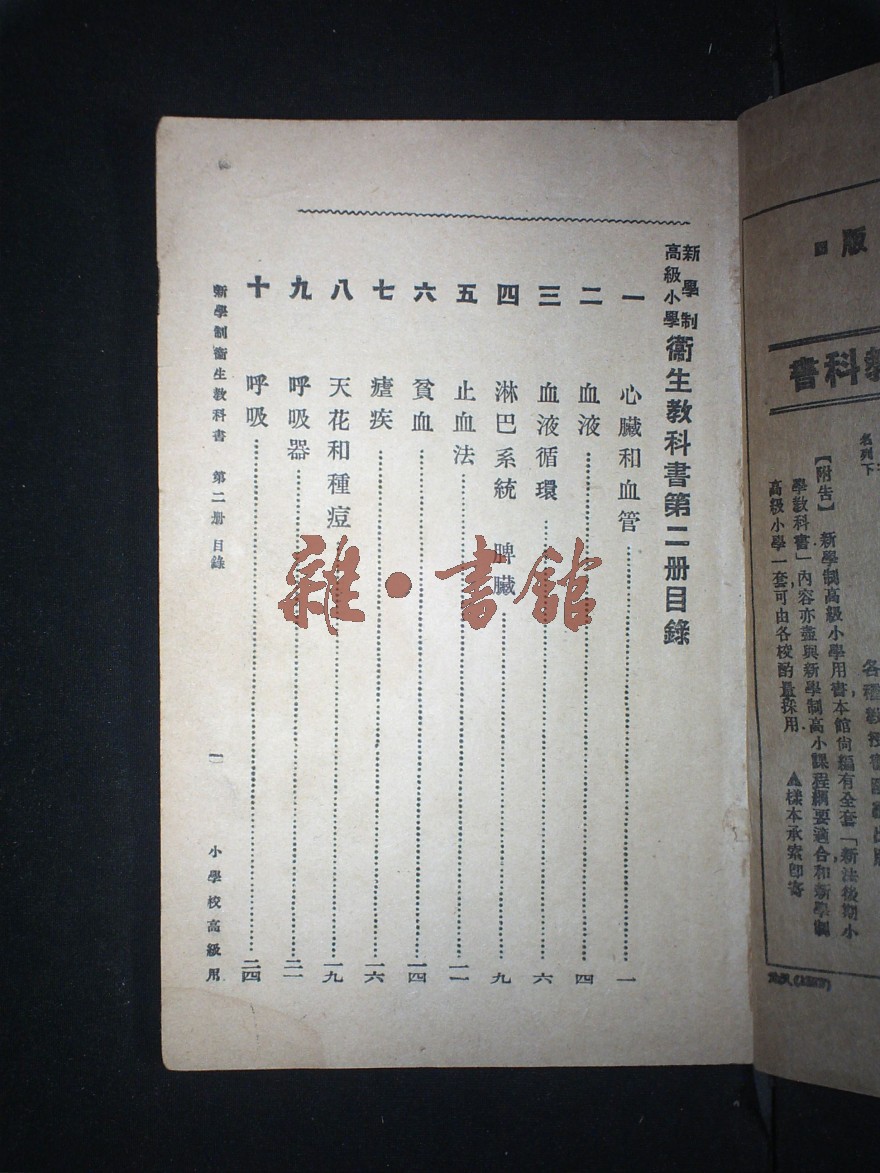 新學制
高級小學
衞生教科書第二册目錄
一 心臟和血管 一
二 血液 四
三 血液循環 六
四 淋巴系統 脾臟 九
五 止血法 一二
六 貧血 一四
七 瘧疾 一六
八 天花和種痘 一九
九 呼吸器 二一
十 呼吸 二四
新學制衞生教科書 第二册 目錄 一 小學校高級用
雜·書館
版
教科書
名列下
各種教授書
【附告】 新學制高級小學用書本館尙編有全套「新法後期小
學教科書」內容亦盡與新學制高小課程綱要適合和新學制
高級小學一套可由各校酌量採用 ▲樣本承索卽寄